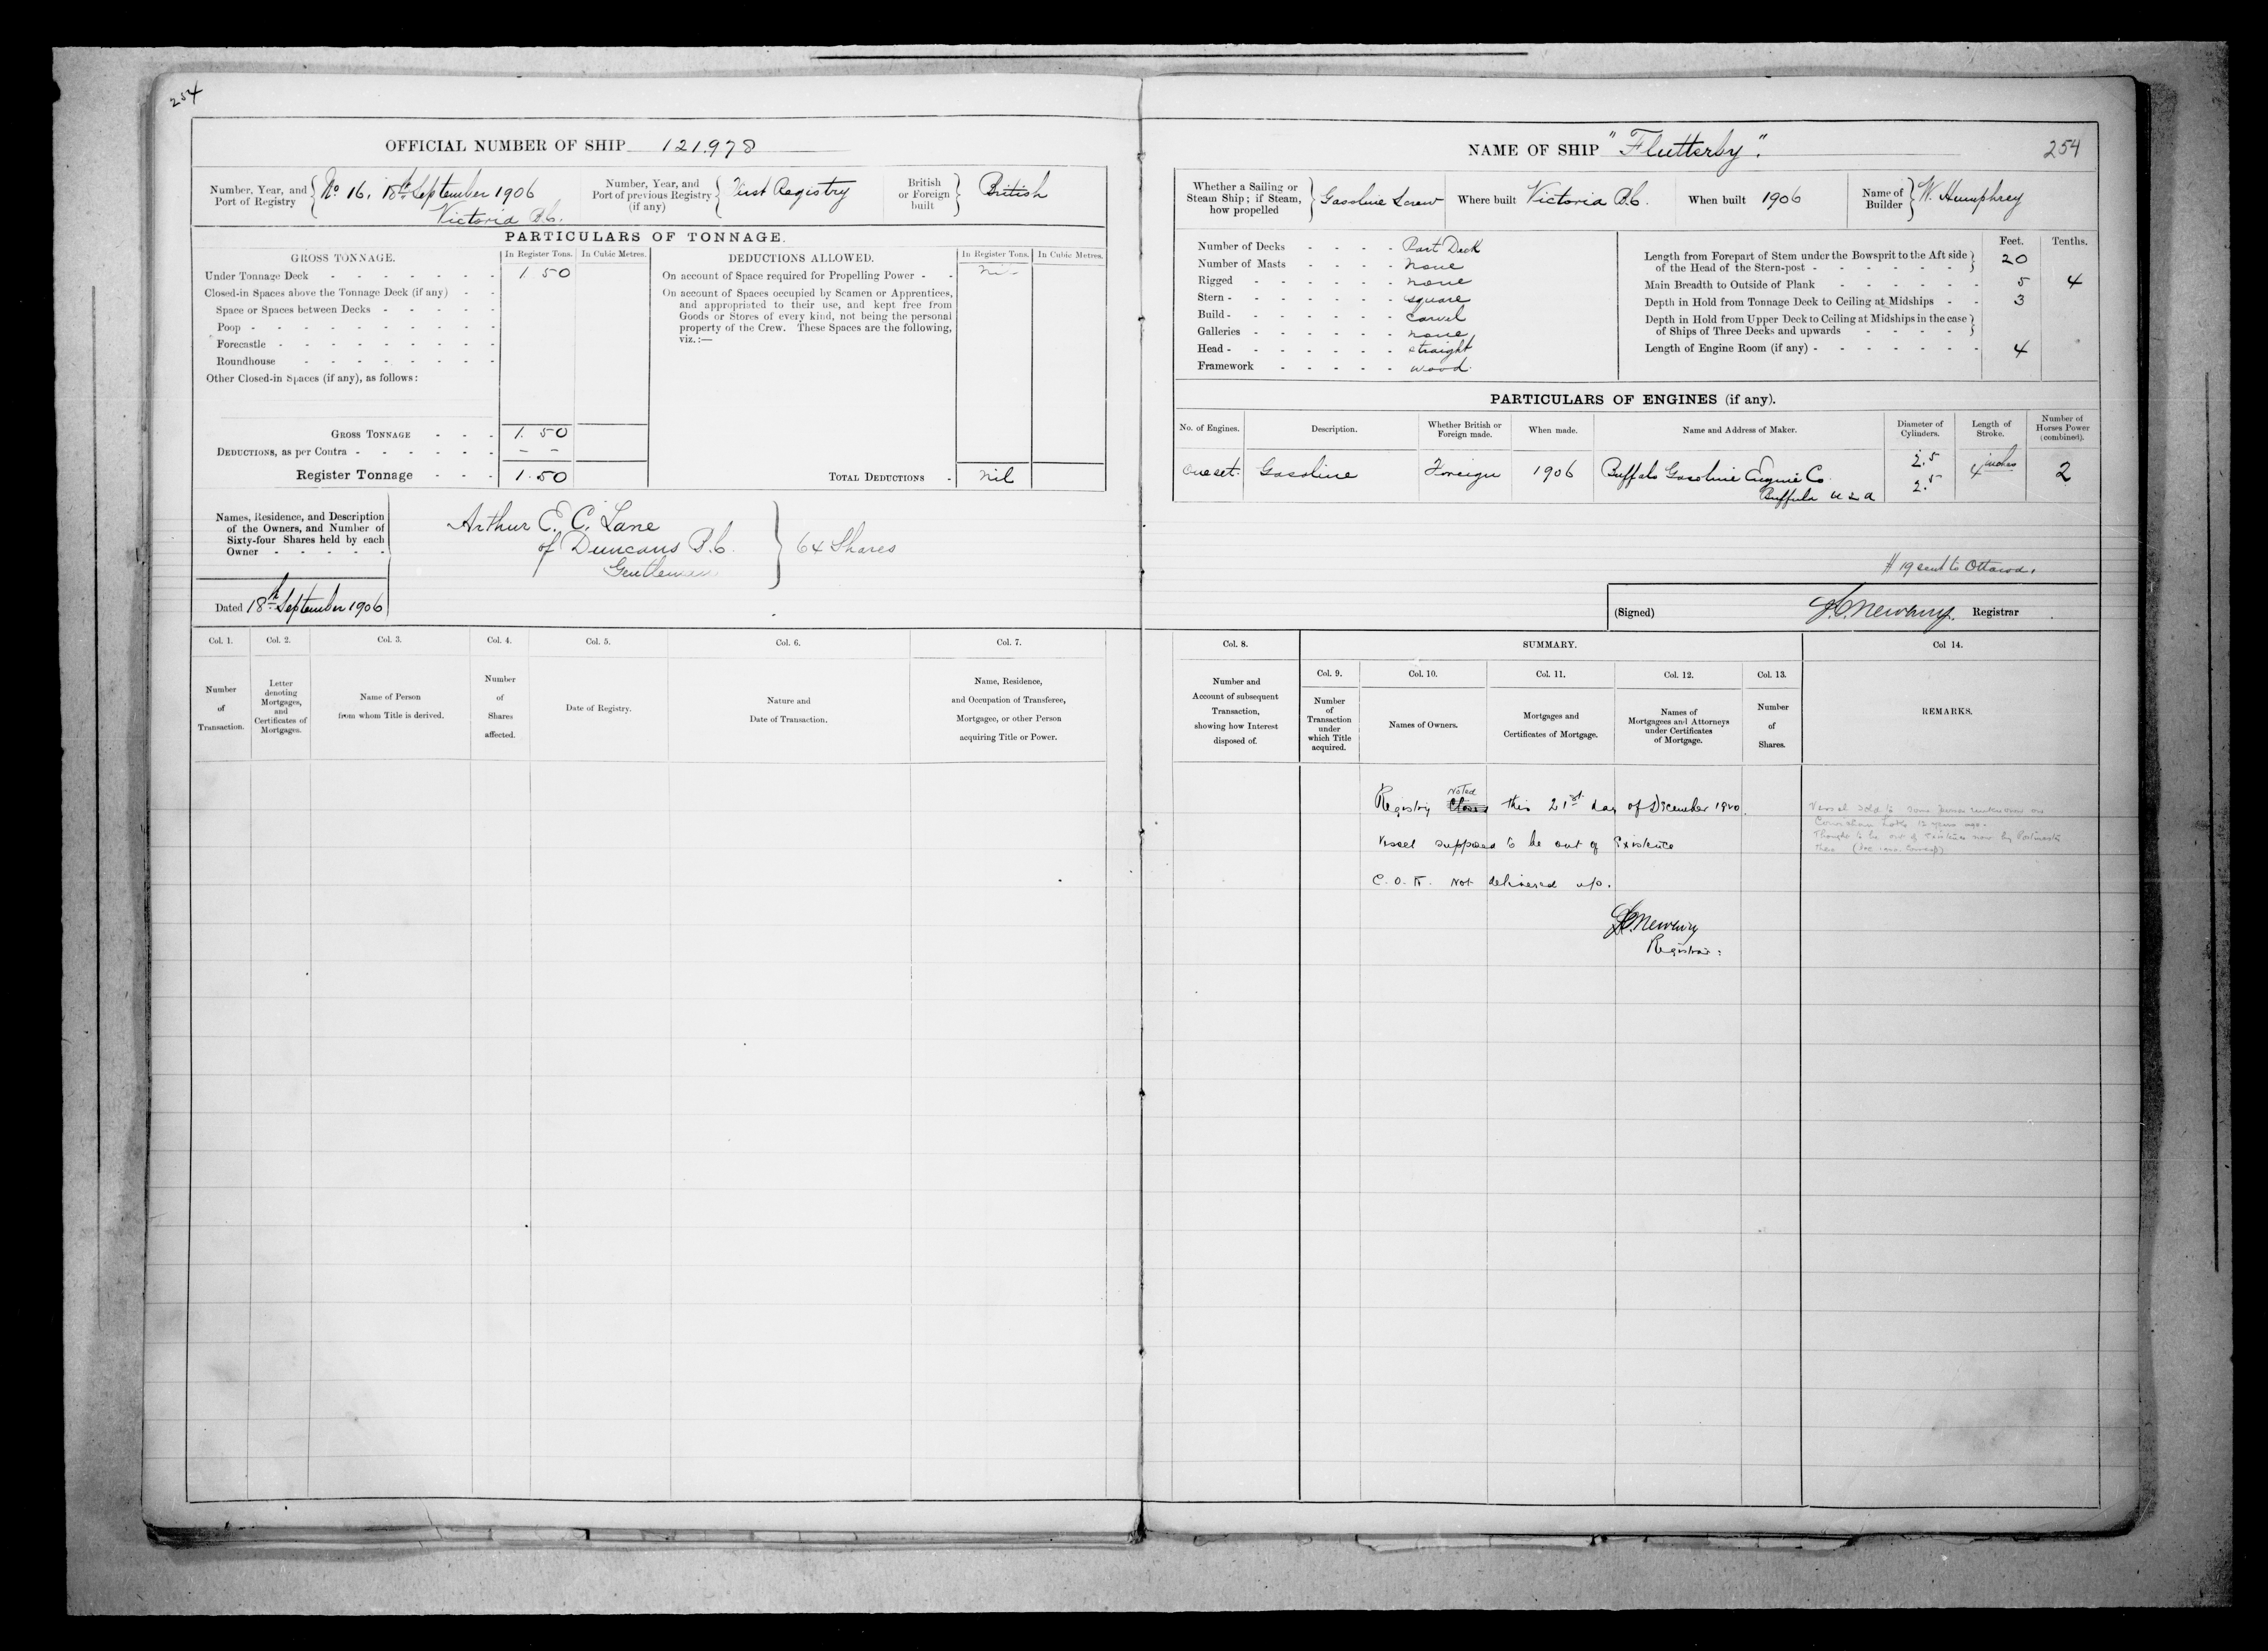 254
OFFICIAL NUMBER OF SHIP 121.978
Number, Year, and Port of Registry
No 16, 18th September 1906
Victoria B.C.
Number, Year, and Port of previous Registry (if any)
First Registry
British or Foreign built
British
PARTICULARS OF TONNAGE.
GROSS TONNAGE.
In Register Tons.
In Cubic Metres.
DEDUCTIONS ALLOWED.
In Register Tons.
In Cubic Metres.
Under Tonnage Deck - 1.50
Closed-in Spaces above the Tonnage Deck (if any) - -
Space or Spaces between Decks - - - - -
Poop - - - - - - - - - -
Forecastle - - - - - - - - -
Roundhouse - - - - - - - -
Other Closed-in Spaces (if any), as follows:
On account of Space required for Propelling Power - - nil
On account of Spaces occupied by Seamen or Apprentices,
and appropriated to their use, and kept free from
Goods or Stores of every kind, not being the personal
property of the Crew. These Spaces are the following,
viz.:—
GROSS TONNAGE - - - 1.50
DEDUCTIONS, as per Contra - - - - - - - -
Register Tonnage - - - 1.50
TOTAL DEDUCTIONS - nil
Names, Residence, and Description
of the Owners, and Number of
Sixty-four Shares held by each
Owner - - - - -
Arthur E. C. Lane
of Duncans B.C.
Gentleman
64 Shares
Dated 18th September 1906
Col. 1.
Number
of
Transaction.
Col. 2.
Letter
denoting
Mortgages,
and
Certificates of
Mortgages.
Col. 3.
Name of Person
from whom Title is derived.
Col. 4.
Number
of
Shares
affected.
Col. 5.
Date of Registry.
Col. 6.
Nature and
Date of Transaction.
Col. 7.
Name, Residence,
and Occupation of Transferee,
Mortgagee, or other Person
acquiring Title or Power.
NAME OF SHIP "Flutterby".
254
Whether a Sailing or
Steam Ship; if Steam,
how propelled
Gasoline Screw
Where built Victoria B.C.
When built 1906
Name of Builder
W. Humphrey
Number of Decks - - - - Part Deck
Number of Masts - - - - none
Rigged - - - - - - none
Stern - - - - - - - square
Build - - - - - - - carvel
Galleries - - - - - - none
Head - - - - - - - straight
Framework - - - - wood
Feet.
Tenths.
Length from Forepart of Stem under the Bowsprit to the Aft side
of the Head of the Stern-post - - - - - - 20
Main Breadth to Outside of Plank - - - - - - 5 4
Depth in Hold from Tonnage Deck to Ceiling at Midships - - 3
Depth in Hold from Upper Deck to Ceiling at Midships in the case
of Ships of Three Decks and upwards - - - - -
Length of Engine Room (if any) - - - - - - - 4
PARTICULARS OF ENGINES (if any).
No. of Engines.
Description.
Whether British or Foreign made.
When made.
Name and Address of Maker.
Diameter of Cylinders.
Length of Stroke.
Number of Horses Power (combined).
One set.
Gasoline
Foreign
1906
Buffalo Gasoline Engine Co
Buffalo U S A
2.5
2.5
4 inches
2
# 19 sent to Ottawa.
(Signed)
Newbury.
Registrar
Col. 8.
Number and
Account of subsequent
Transaction,
showing how Interest
disposed of.
SUMMARY.
Col. 9.
Number
of
Transaction
under
which Title
acquired.
Col. 10.
Names of Owners.
Col. 11.
Mortgages and
Certificates of Mortgage.
Col. 12.
Names of
Mortgagees and Attorneys
under Certificates
of Mortgage.
Col. 13.
Number
of
Shares.
Col 14.
REMARKS.
Registry Noted this 21st day of December 1920.
Vessel supposed to be out of Existence
C.O.R. Not delivered up.
Newbury
Registrar.
Vessel sold to some
12 years ago.
Thought to be out of Existence now by Postmaster